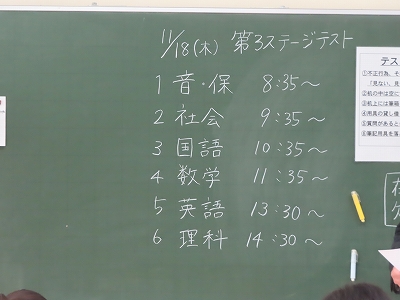 11/18(木) 第3ステージテスト
1 音・保 8:35～
2 社会 9:35～
3 国語 10:35～
4 数学 11:35～
5 英語 13:30～
6 理科 14:30～
テス
①不正行為、そ
「見ない、見
②机の中は空に
③机上には筆箱
④用具の貸し借
⑤質問があると
⑥筆記用具を落